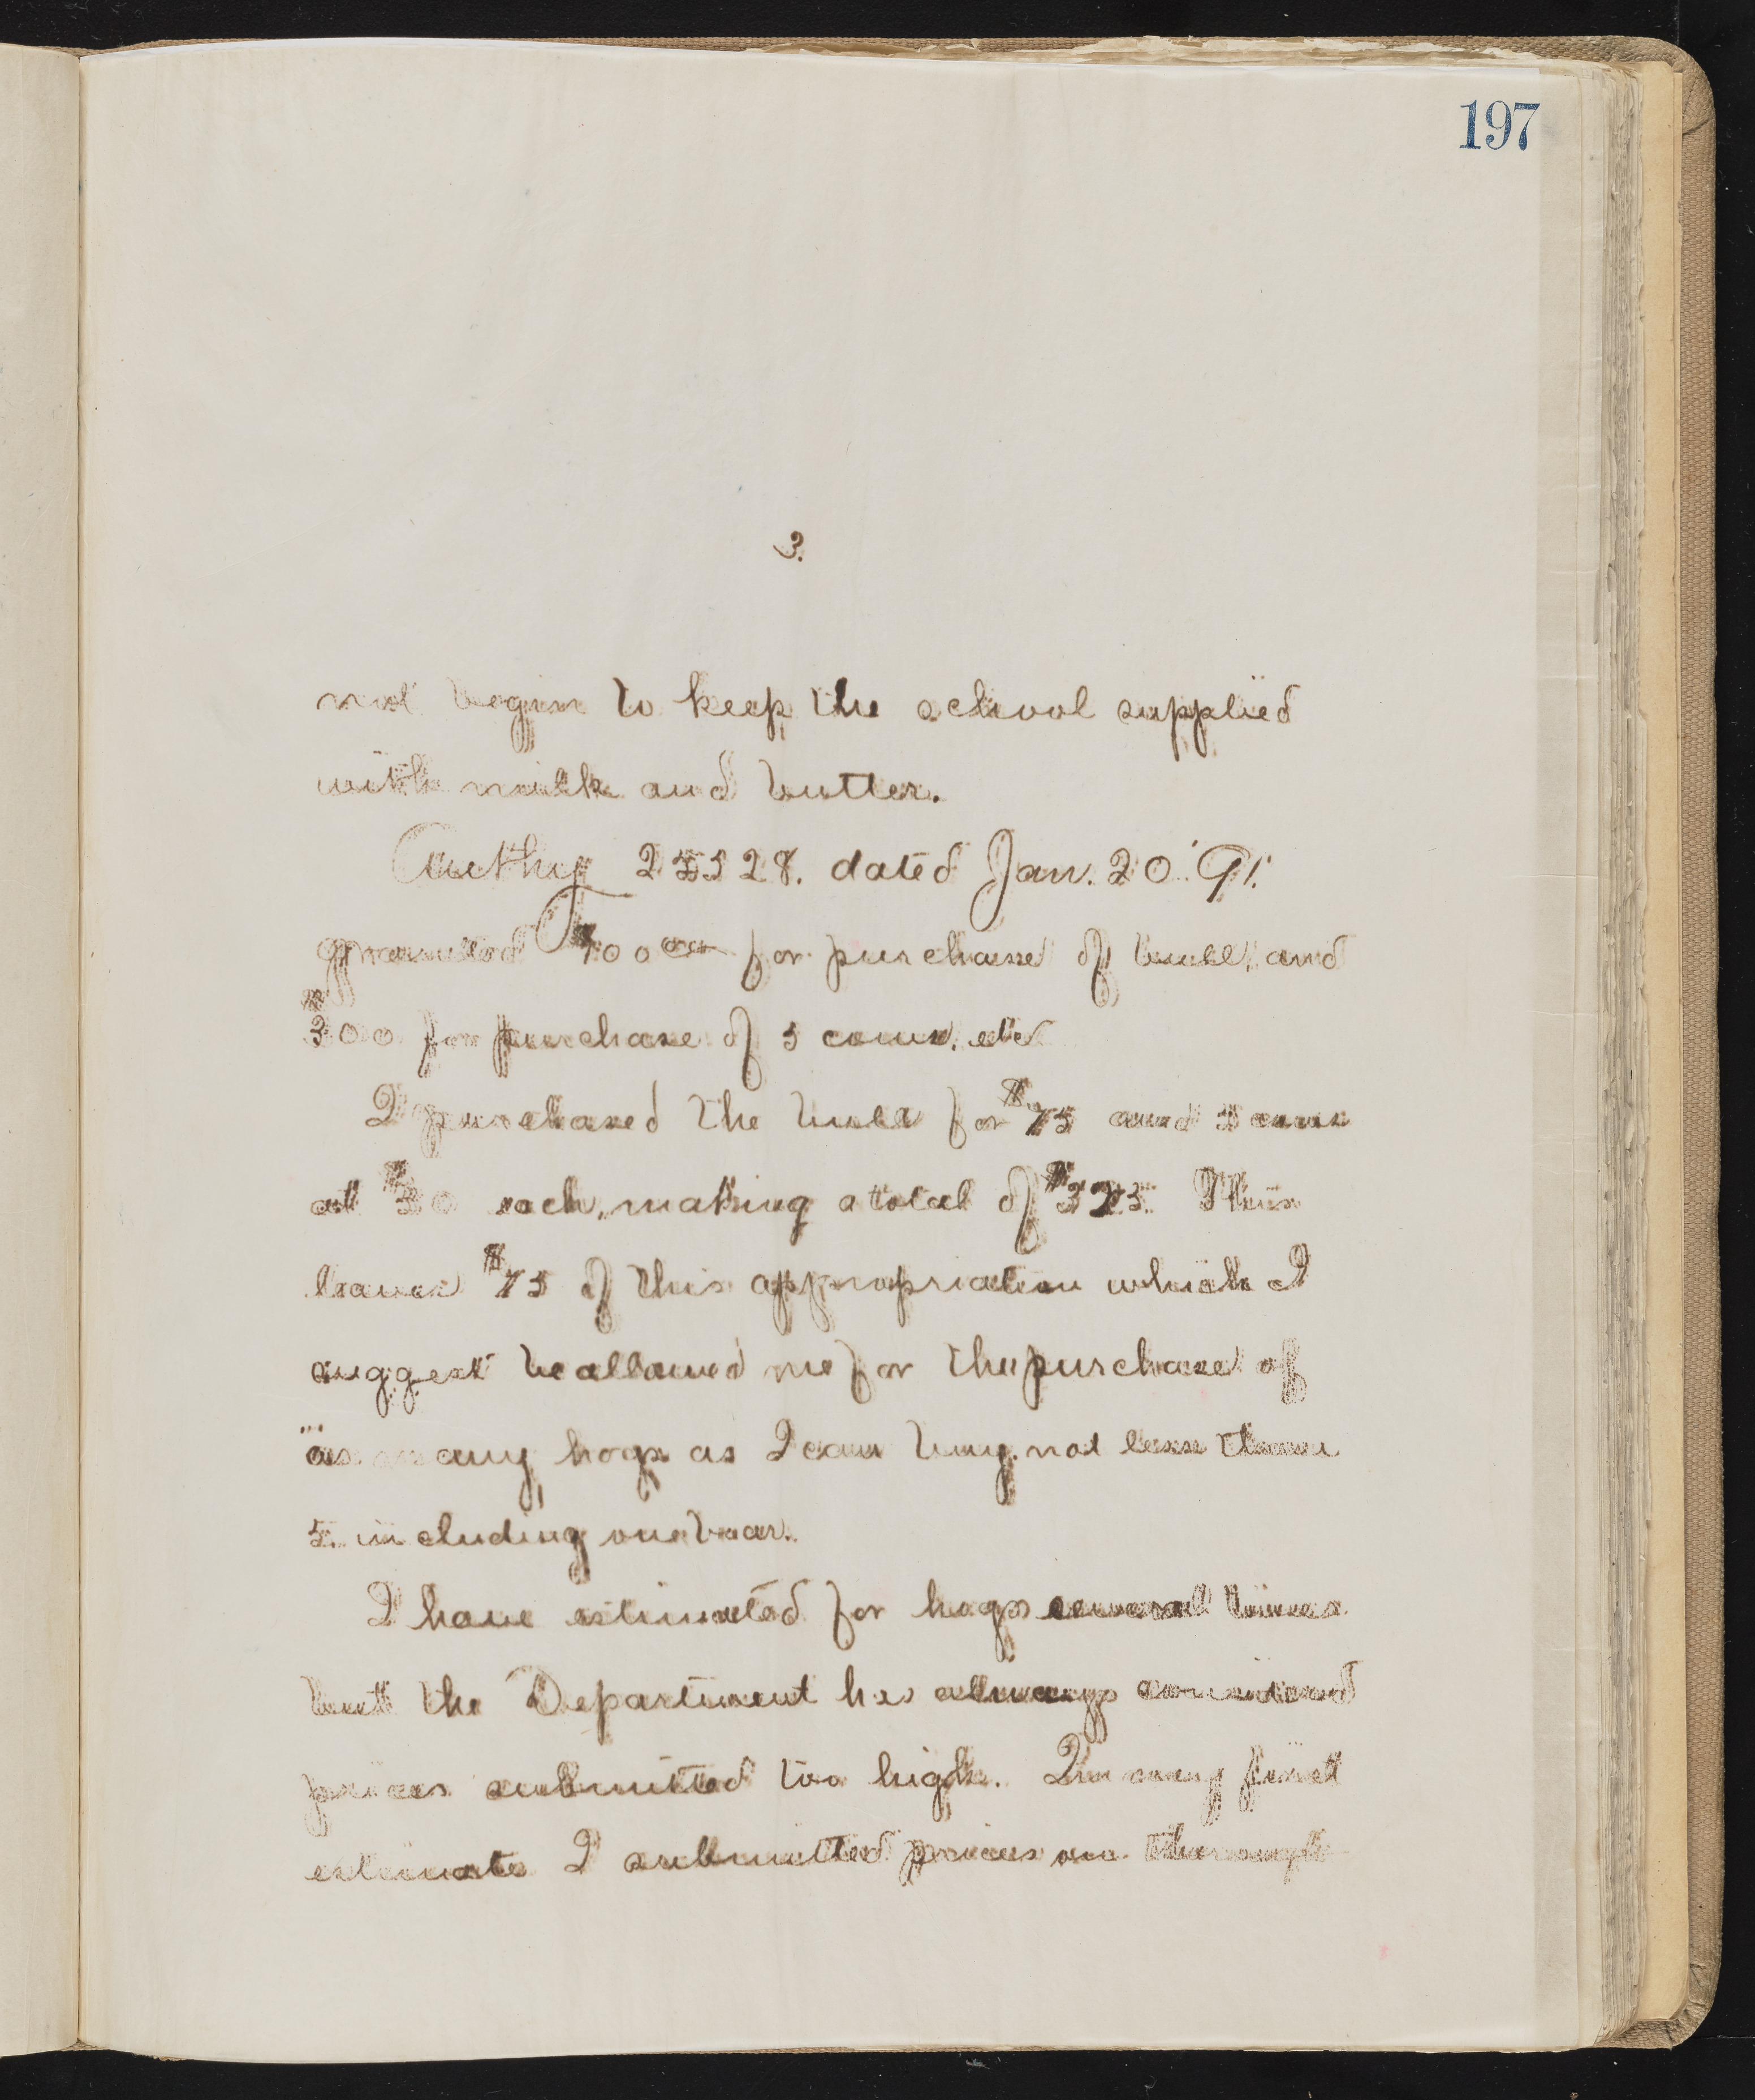 197
3.
not begin to keep the school supplied
with milk and butter.
Authy 25528. dated Jan. 20. '91.
granted $100 for purchase of bull and
$300 for purchase of 5 cows. etc
I purchased the bull for $75 and 5 cows
at $30 each, making a total of $325. This
leaves $75 of this appropriation which I
suggest be allowed me for the purchase of
as many hogs as I can buy. not less than
5. including one boar.
I have estimated for hogs several times
but the Department has allways considered
prices submitted too high. In my first
estimate I submitted prices on